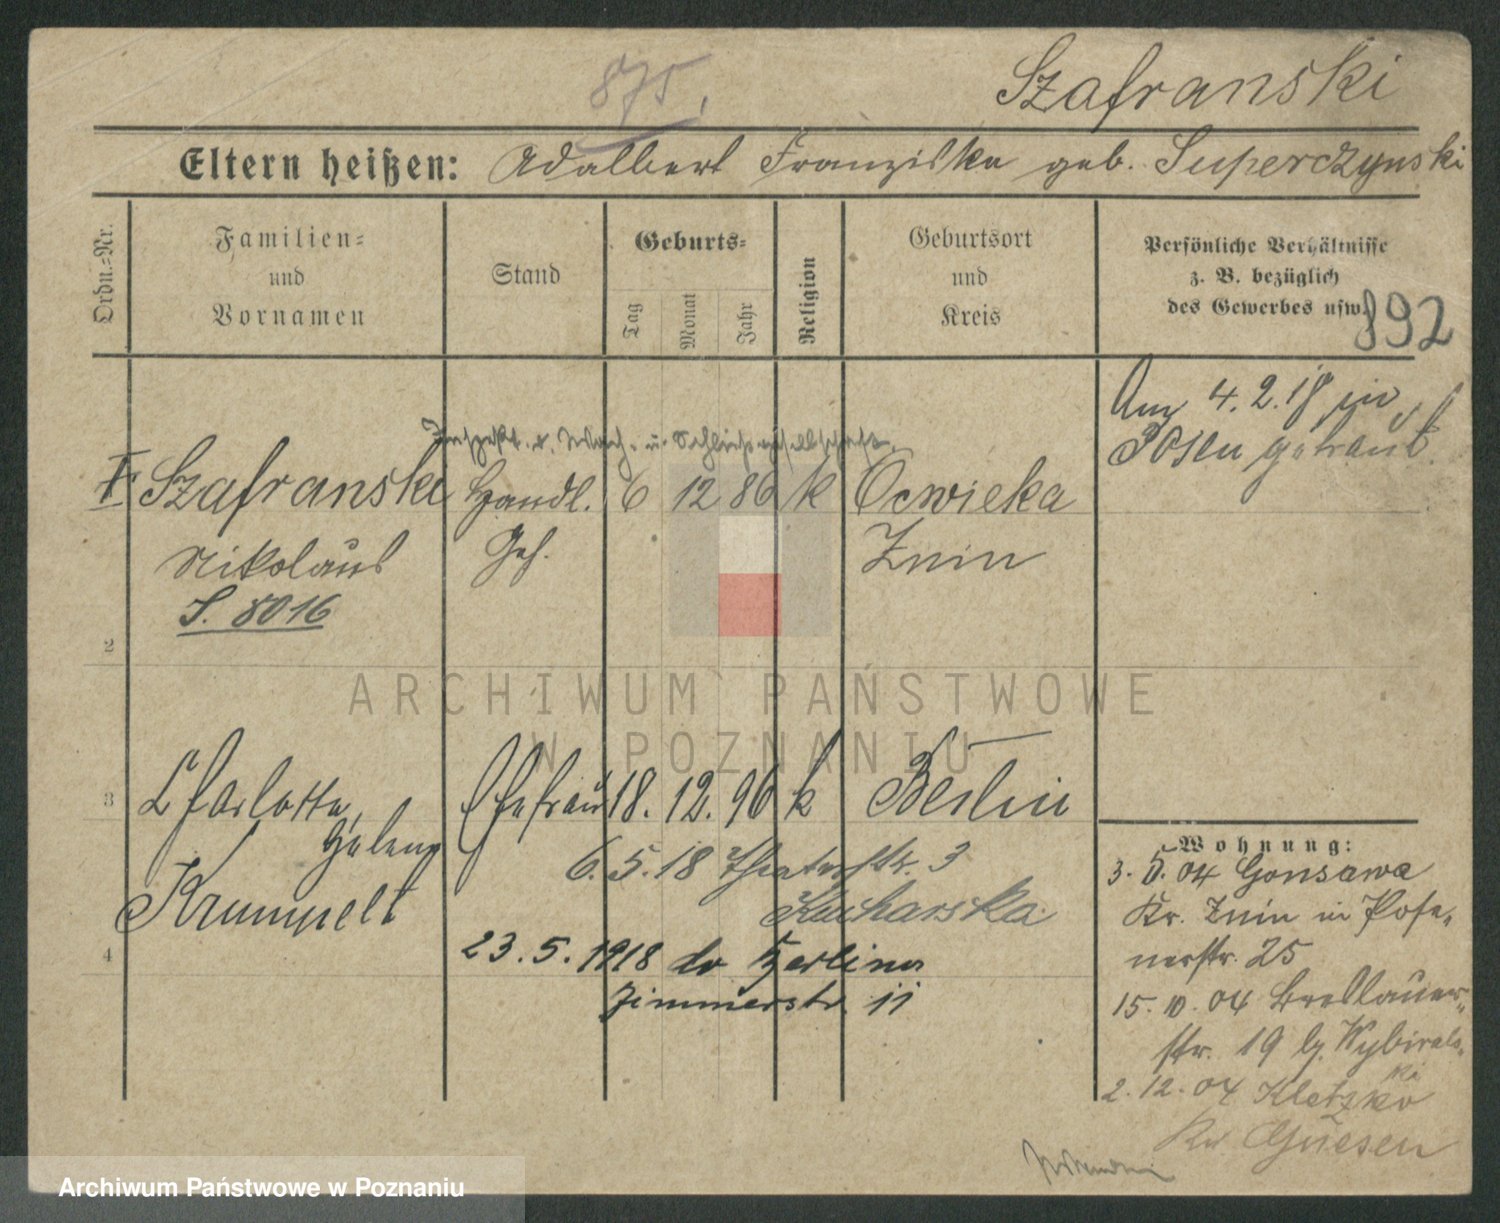 875.
Szafranski
Eltern heißen: Adalbert Franziska geb. Superczynski
Ordn.-Nr.
Familien-
und
Vornamen
Stand
Geburts-
Tag
Monat
Jahr
Religion
Geburtsort
und
Kreis
Persönliche Verhältnisse
z. B. bezüglich
des Gewerbes usw.
892
Am 4.2.18 in
Posen getraut.
Inspekt. d. Wach- u. Schließgesellschaft
Szafranski Handl. 6 12 86 k Ocwieka
Nikolaus Geh. Znin
S. 8016
2
3 Charlotte, Ehefrau 18. 12. 96 k Berlin
Helene
Krumpelt
6.5.18 Theaterstr. 3
Kucharska
4
23.5.1918 Berlin
Zimmerstr. 11
Wohnung:
04 Gonsawa
Kr. Znin in Pose-
nerstr. 25
15.10.04 Breslauer-
str. 19 b. Wybirals-
ki
2.12.04 Kletzko
Kr Gnesen
ARCHIWUM PAŃSTWOWE
W POZNANIU
Archiwum Państwowe w Poznaniu